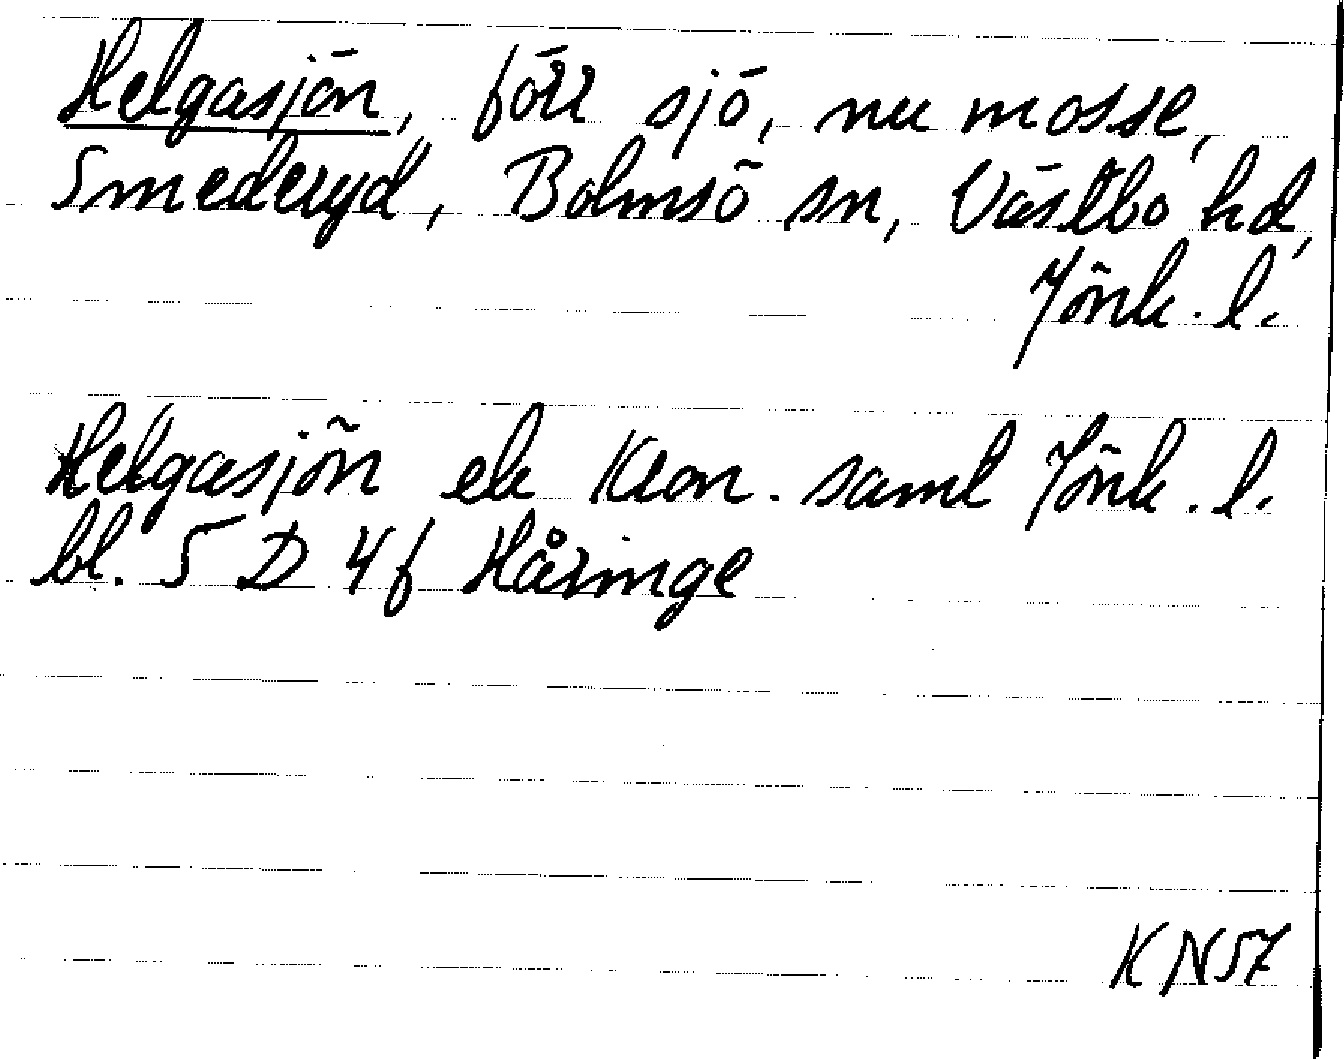 Helgasjön, förr sjö, nu mosse,
Smederyd, Bolmsö sn, Västbo hd,
Jönk. l.
Helgasjön ek Kron. saml Jönk. l.
bl. 5 D 4f Håringe
KN57